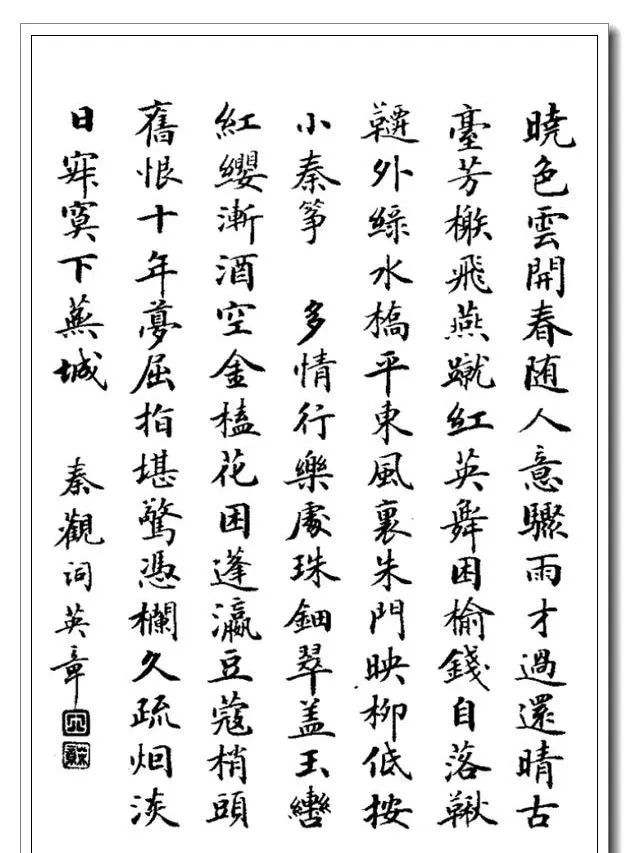 晓色雲開春随人意驟雨才過還晴古
臺芳榭飛燕蹴紅英舞困榆錢自落鞦
韆外綠水橋平東風裏朱門映柳低按
小秦筝 多情行樂處珠鈿翠盖玉轡
紅纓漸酒空金榼花困蓬瀛豆蔻梢頭
舊恨十年夢屈指堪驚憑欄久疏烟淡
日寂寞下蕪城 秦觀詞英章